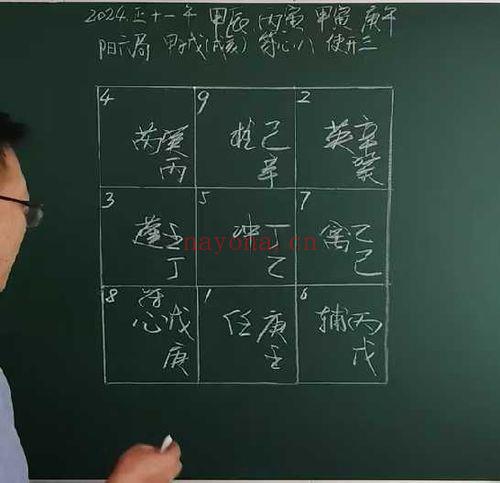 2024.正十一午 甲辰 丙寅 甲寅 庚午
阳六局 甲子戊(戌亥) 符心八 使开三
4 9 2
芮癸 柱己 英辛
丙 辛 癸
3 5 7
蓬壬 冲丁 禽乙
丁 乙 己
8 1 6
符
心戊 任庚 辅丙
庚 壬 戊
nayona.cn